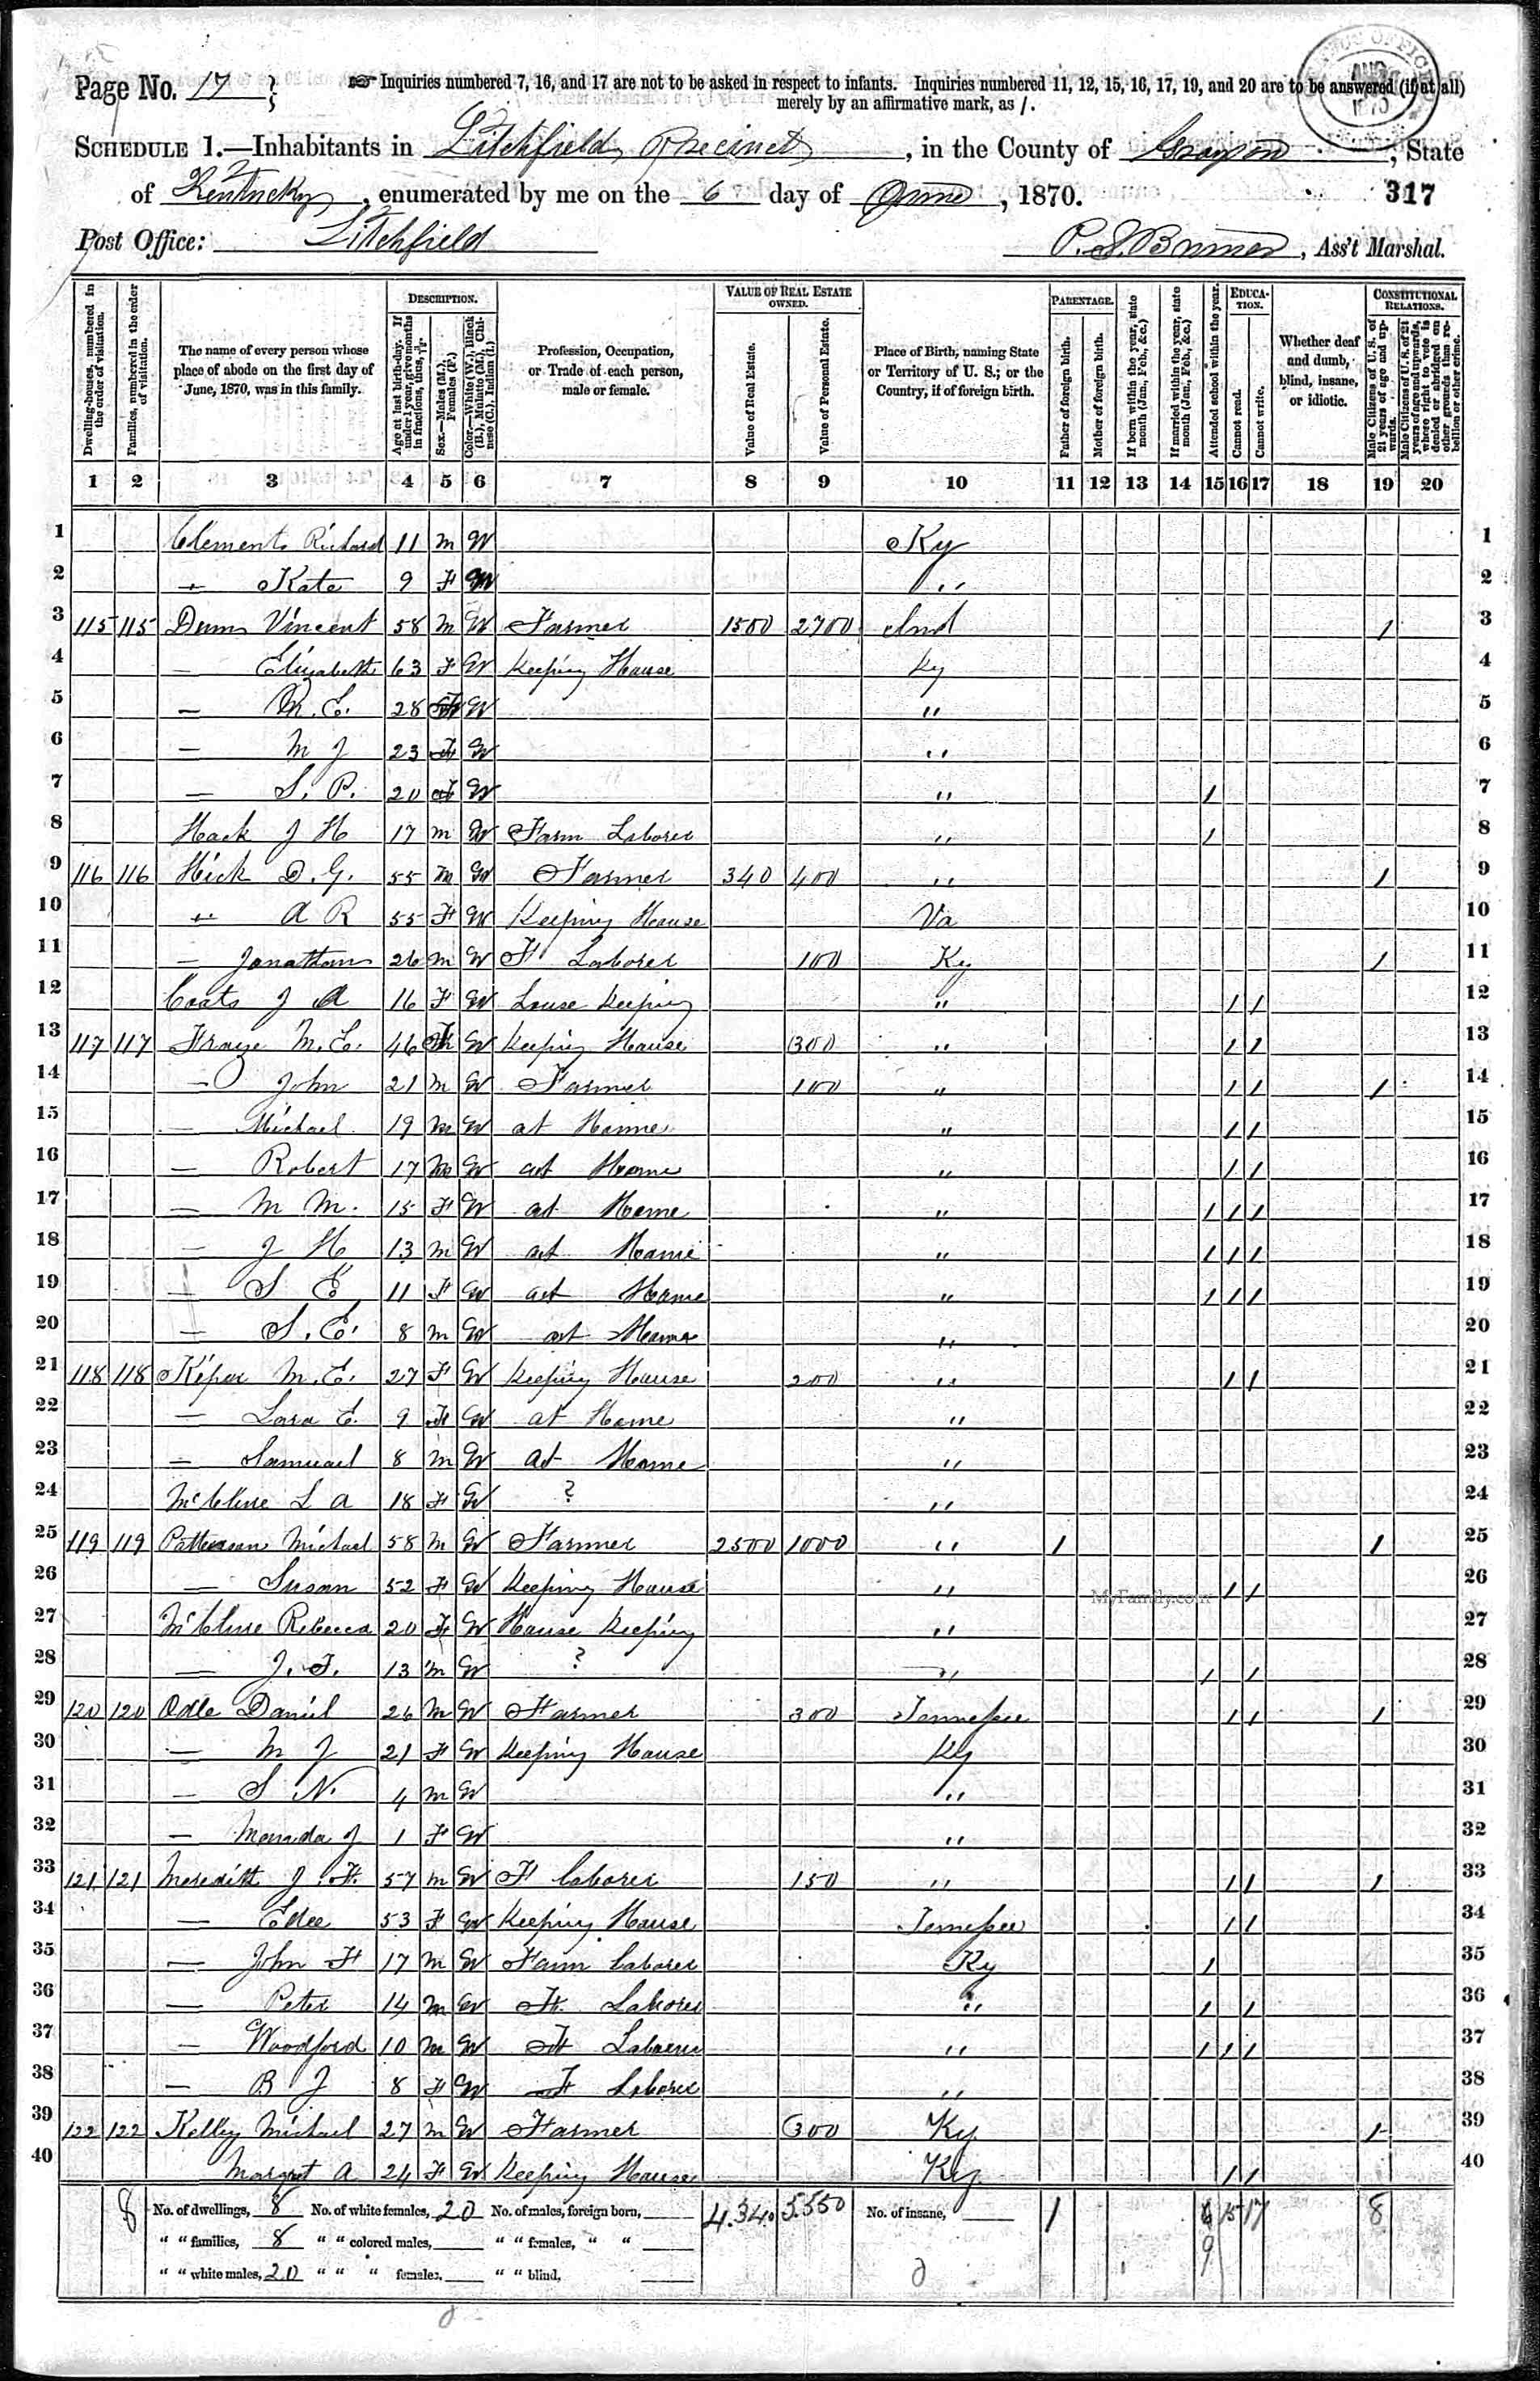 Page No. 17
Inquiries numbered 7, 16, and 17 are not to be asked in respect to infants. Inquiries numbered 11, 12, 15, 16, 17, 19, and 20 are to be answered (if at all)
merely by an affirmative mark, as /.
SCHEDULE 1.—Inhabitants in Litchfield Precinct, in the County of Grayson, State
of Kentucky, enumerated by me on the 6 day of June, 1870. 317
Post Office: Litchfield P. S. , Ass't Marshal.
Dwelling-houses, numbered in the order of visitation.
Families, numbered in the order of visitation.
The name of every person whose place of abode on the first day of June, 1870, was in this family.
DESCRIPTION.
Age at last birth-day. If under 1 year, give months in fractions, thus,
Sex.—Males (M.), Females (F.)
Color.—White (W.), Black (B.), Mulatto (M.), Chinese (C.), Indian (I.)
Profession, Occupation, or Trade of each person, male or female.
VALUE OF REAL ESTATE OWNED.
Value of Real Estate.
Value of Personal Estate.
Place of Birth, naming State or Territory of U. S.; or the Country, if of foreign birth.
PARENTAGE.
Father of foreign birth.
Mother of foreign birth.
If born within the year, state month (Jan., Feb., &c.)
If married within the year, state month (Jan., Feb., &c.)
Attended school within the year.
EDUCATION.
Cannot read.
Cannot write.
Whether deaf and dumb, blind, insane, or idiotic.
CONSTITUTIONAL RELATIONS.
Male Citizens of U. S. of 21 years of age and upwards.
Male Citizens of U. S. of 21 years of age and upwards, where right to vote is denied or abridged on other grounds than rebellion or other crime.
1 2 3 4 5 6 7 8 9 10 11 12 13 14 15 16 17 18 19 20
1 Clements Richard 11 m W Ky 1
2 — Kate 9 F W " 2
3 115 115 Vincent 58 m W Farmer 1500 2700 Ind / 3
4 — Elizabeth 63 F W Keeping House Ky 4
5 — M. E. 28 F W " 5
6 — M J 23 F W " 6
7 — S. P. 20 F W " / 7
8 Hack J H 17 m W Farm Laborer " / 8
9 116 116 Hick D. G. 55 m W Farmer 340 400 " / 9
10 " A R 55 F W Keeping House Va 10
11 — Jonathan 26 m W F Laborer 100 Ky / 11
12 Coats J A 16 F W House Keeping " / / 12
13 117 117 M. E. 46 F W Keeping House 300 " / / 13
14 — John 21 m W Farmer 100 " / / / 14
15 — Michael 19 m W at Home " / / 15
16 — Robert 17 m W at Home " / / 16
17 — M M. 15 F W at Home " / / / 17
18 — J H 13 m W at Home " / / / 18
19 — S E 11 F W at Home " / / / 19
20 — S. E. 8 m W at Home " 20
21 118 118 M. E. 27 F W Keeping House 200 " / / 21
22 — Lara E. 9 F W at Home " 22
23 — Samuel 8 m W at Home " 23
24 McClure L A 18 F W ? " 24
25 119 119 Patterson Michael 58 m W Farmer 2500 1000 " / / 25
26 — Susan 52 F W Keeping House " MyFamily.com / / 26
27 McClure Rebecca 20 F W House Keeping " 27
28 — J. T. 13 m W ? " / / 28
29 120 120 Odle Daniel 26 m W Farmer 300 Tennessee / / / 29
30 — M J 21 F W Keeping House Ky 30
31 — S N. 4 m W " 31
32 — J 1 F W " 32
33 121 121 Meredith J. H. 57 m W F Laborer 150 " / / / 33
34 — Edee 53 F W Keeping House Tennessee / / 34
35 — John H 17 m W Farm Laborer Ky / 35
36 — Peter 14 m W F. Laborer " / / 36
37 — Woodford 10 m W F Laborer " / / / 37
38 — B J 8 F W F Laborer " 38
39 122 122 Kelley Michael 27 m W Farmer 300 Ky / 39
40 Margret A 24 F W Keeping House Ky / / 40
8 No. of dwellings, 8 No. of white females, 20 No. of males, foreign born, 4.340 5.550 No. of insane, 1 15 17 8
" " families, 8 " " colored males, " " females, " " 9
" " white males, 20 " " " females, " " blind,